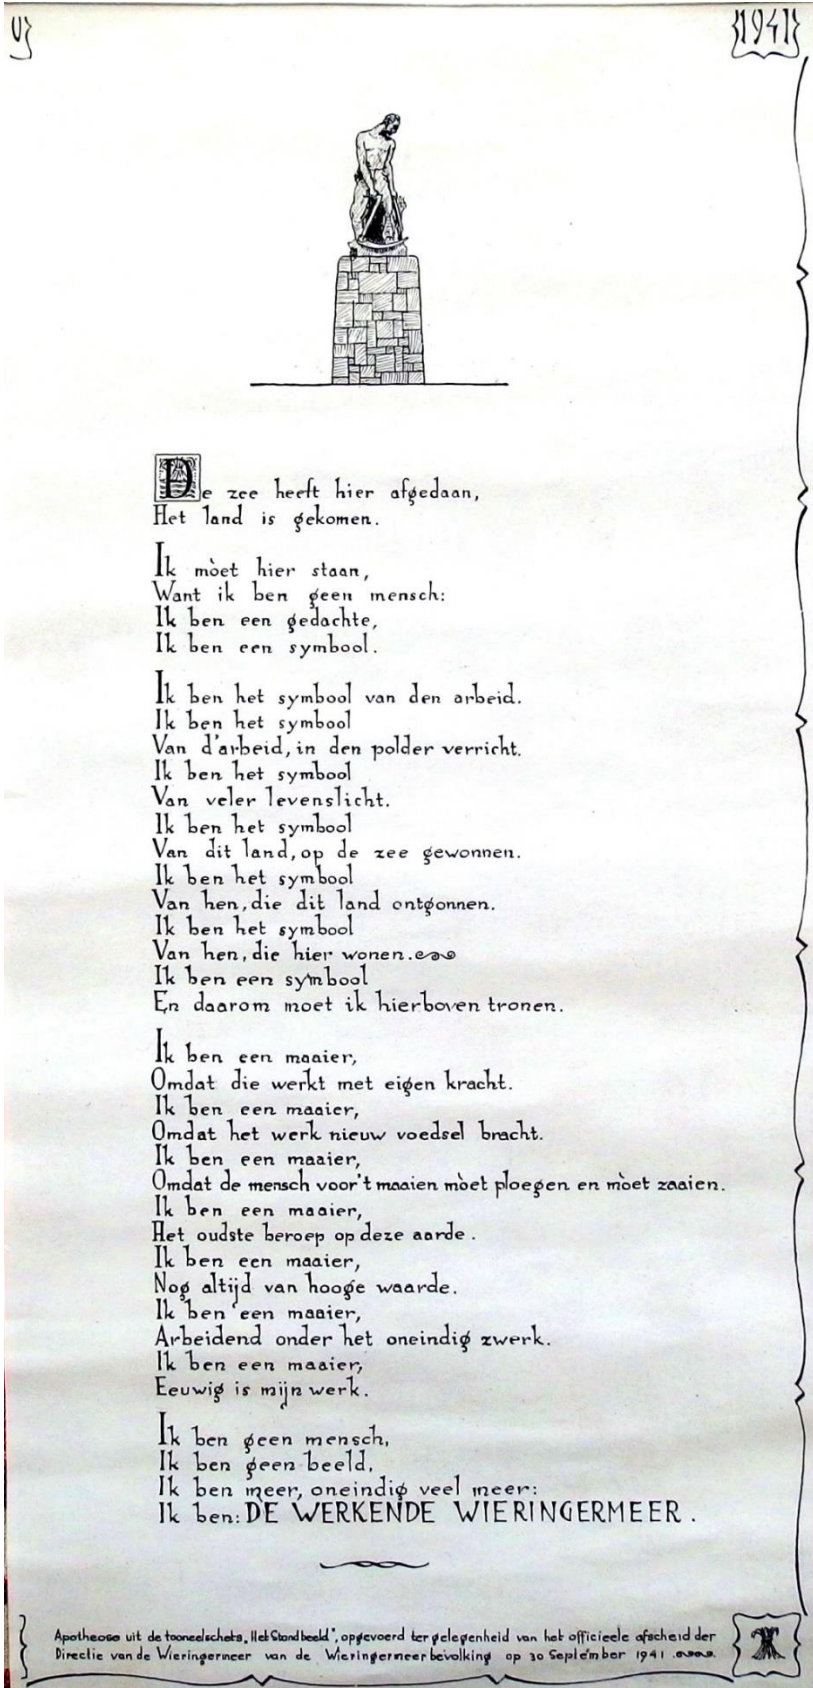 1941
De zee heeft hier afgedaan,
Het land is gekomen.
Ik mòet hier staan,
Want ik ben geen mensch:
Ik ben een gedachte,
Ik ben een symbool.
Ik ben het symbool van den arbeid.
Ik ben het symbool
Van d'arbeid, in den polder verricht.
Ik ben het symbool
Van veler levenslicht.
Ik ben het symbool
Van dit land, op de zee gewonnen.
Ik ben het symbool
Van hen, die dit land ontgonnen.
Ik ben het symbool
Van hen, die hier wonen.
Ik ben een symbool
En daarom moet ik hierboven tronen.
Ik ben een maaier,
Omdat die werkt met eigen kracht.
Ik ben een maaier,
Omdat het werk nieuw voedsel bracht.
Ik ben een maaier,
Omdat de mensch voor't maaien mòet ploegen en mòet zaaien.
Ik ben een maaier,
Het oudste beroep op deze aarde.
Ik ben een maaier,
Nog altijd van hooge waarde.
Ik ben een maaier,
Arbeidend onder het oneindig zwerk.
Ik ben een maaier,
Eeuwig is mijn werk.
Ik ben geen mensch,
Ik ben geen beeld,
Ik ben meer, oneindig veel meer:
Ik ben: DE WERKENDE WIERINGERMEER.
Apotheose uit de tooneelschets „Het Standbeeld", opgevoerd ter gelegenheid van het officieele afscheid der
Directie van de Wieringermeer van de Wieringermeerbevolking op 30 September 1941